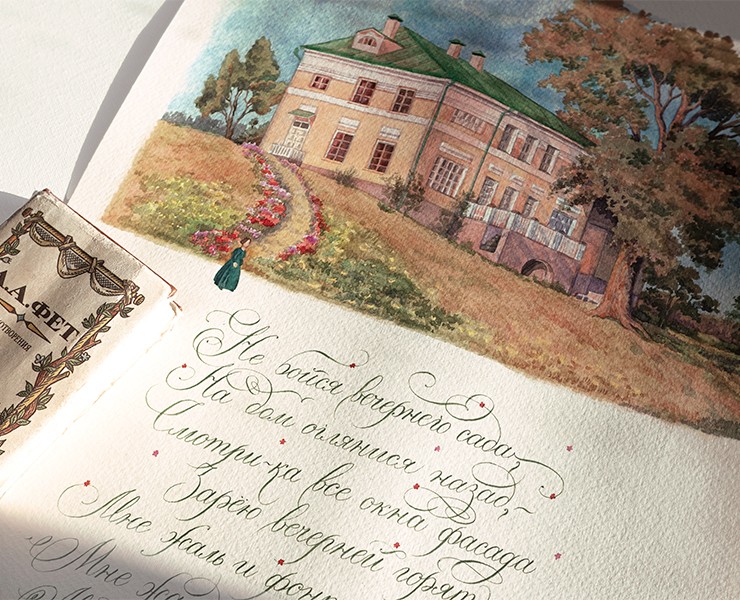 А.А.ФЕТ
Не бойся вечернего сада,
На дом оглянися назад,–
Смотри-ка все окна фасада
Зарёю вечерней горят
Мне жаль и фон
Мне жа